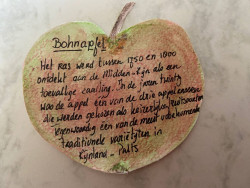 Bohnapfel
Het ras werd tussen 1750 en 1800
ontdekt aan de Midden-Rijn als een
toevallige zaailing. In de jaren twintig
was de appel één van de drie appelrassen
die werden gekozen als
tegenwoordig één van de meest voorkomende
traditionele variëteiten in
Rijnland-Palts